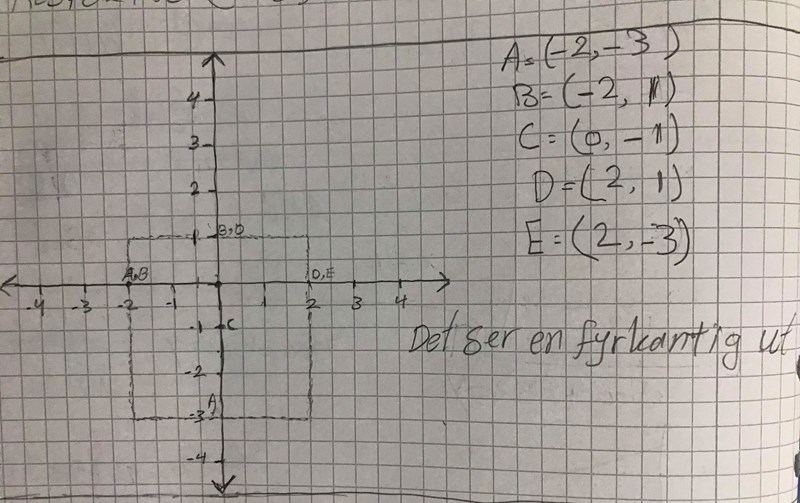 4
3
2
1 B,D
A,B D,E
-4 -3 -2 -1 1 2 3 4
-1 C
-2
-3 A
-4
A=(-2,-3)
B=(-2, 1)
C=(0, -1)
D=(2, 1)
E=(2,-3)
Det ser en fyrkantig ut